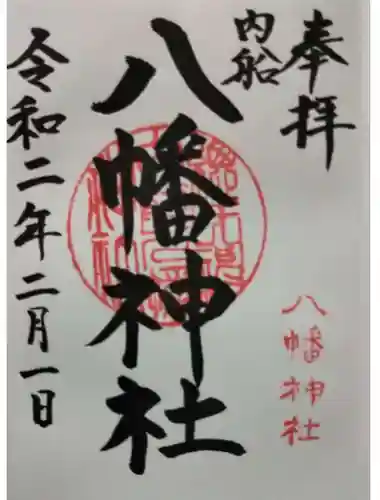 奉拝
内船
八幡神社
令和二年二月一日
八幡神社